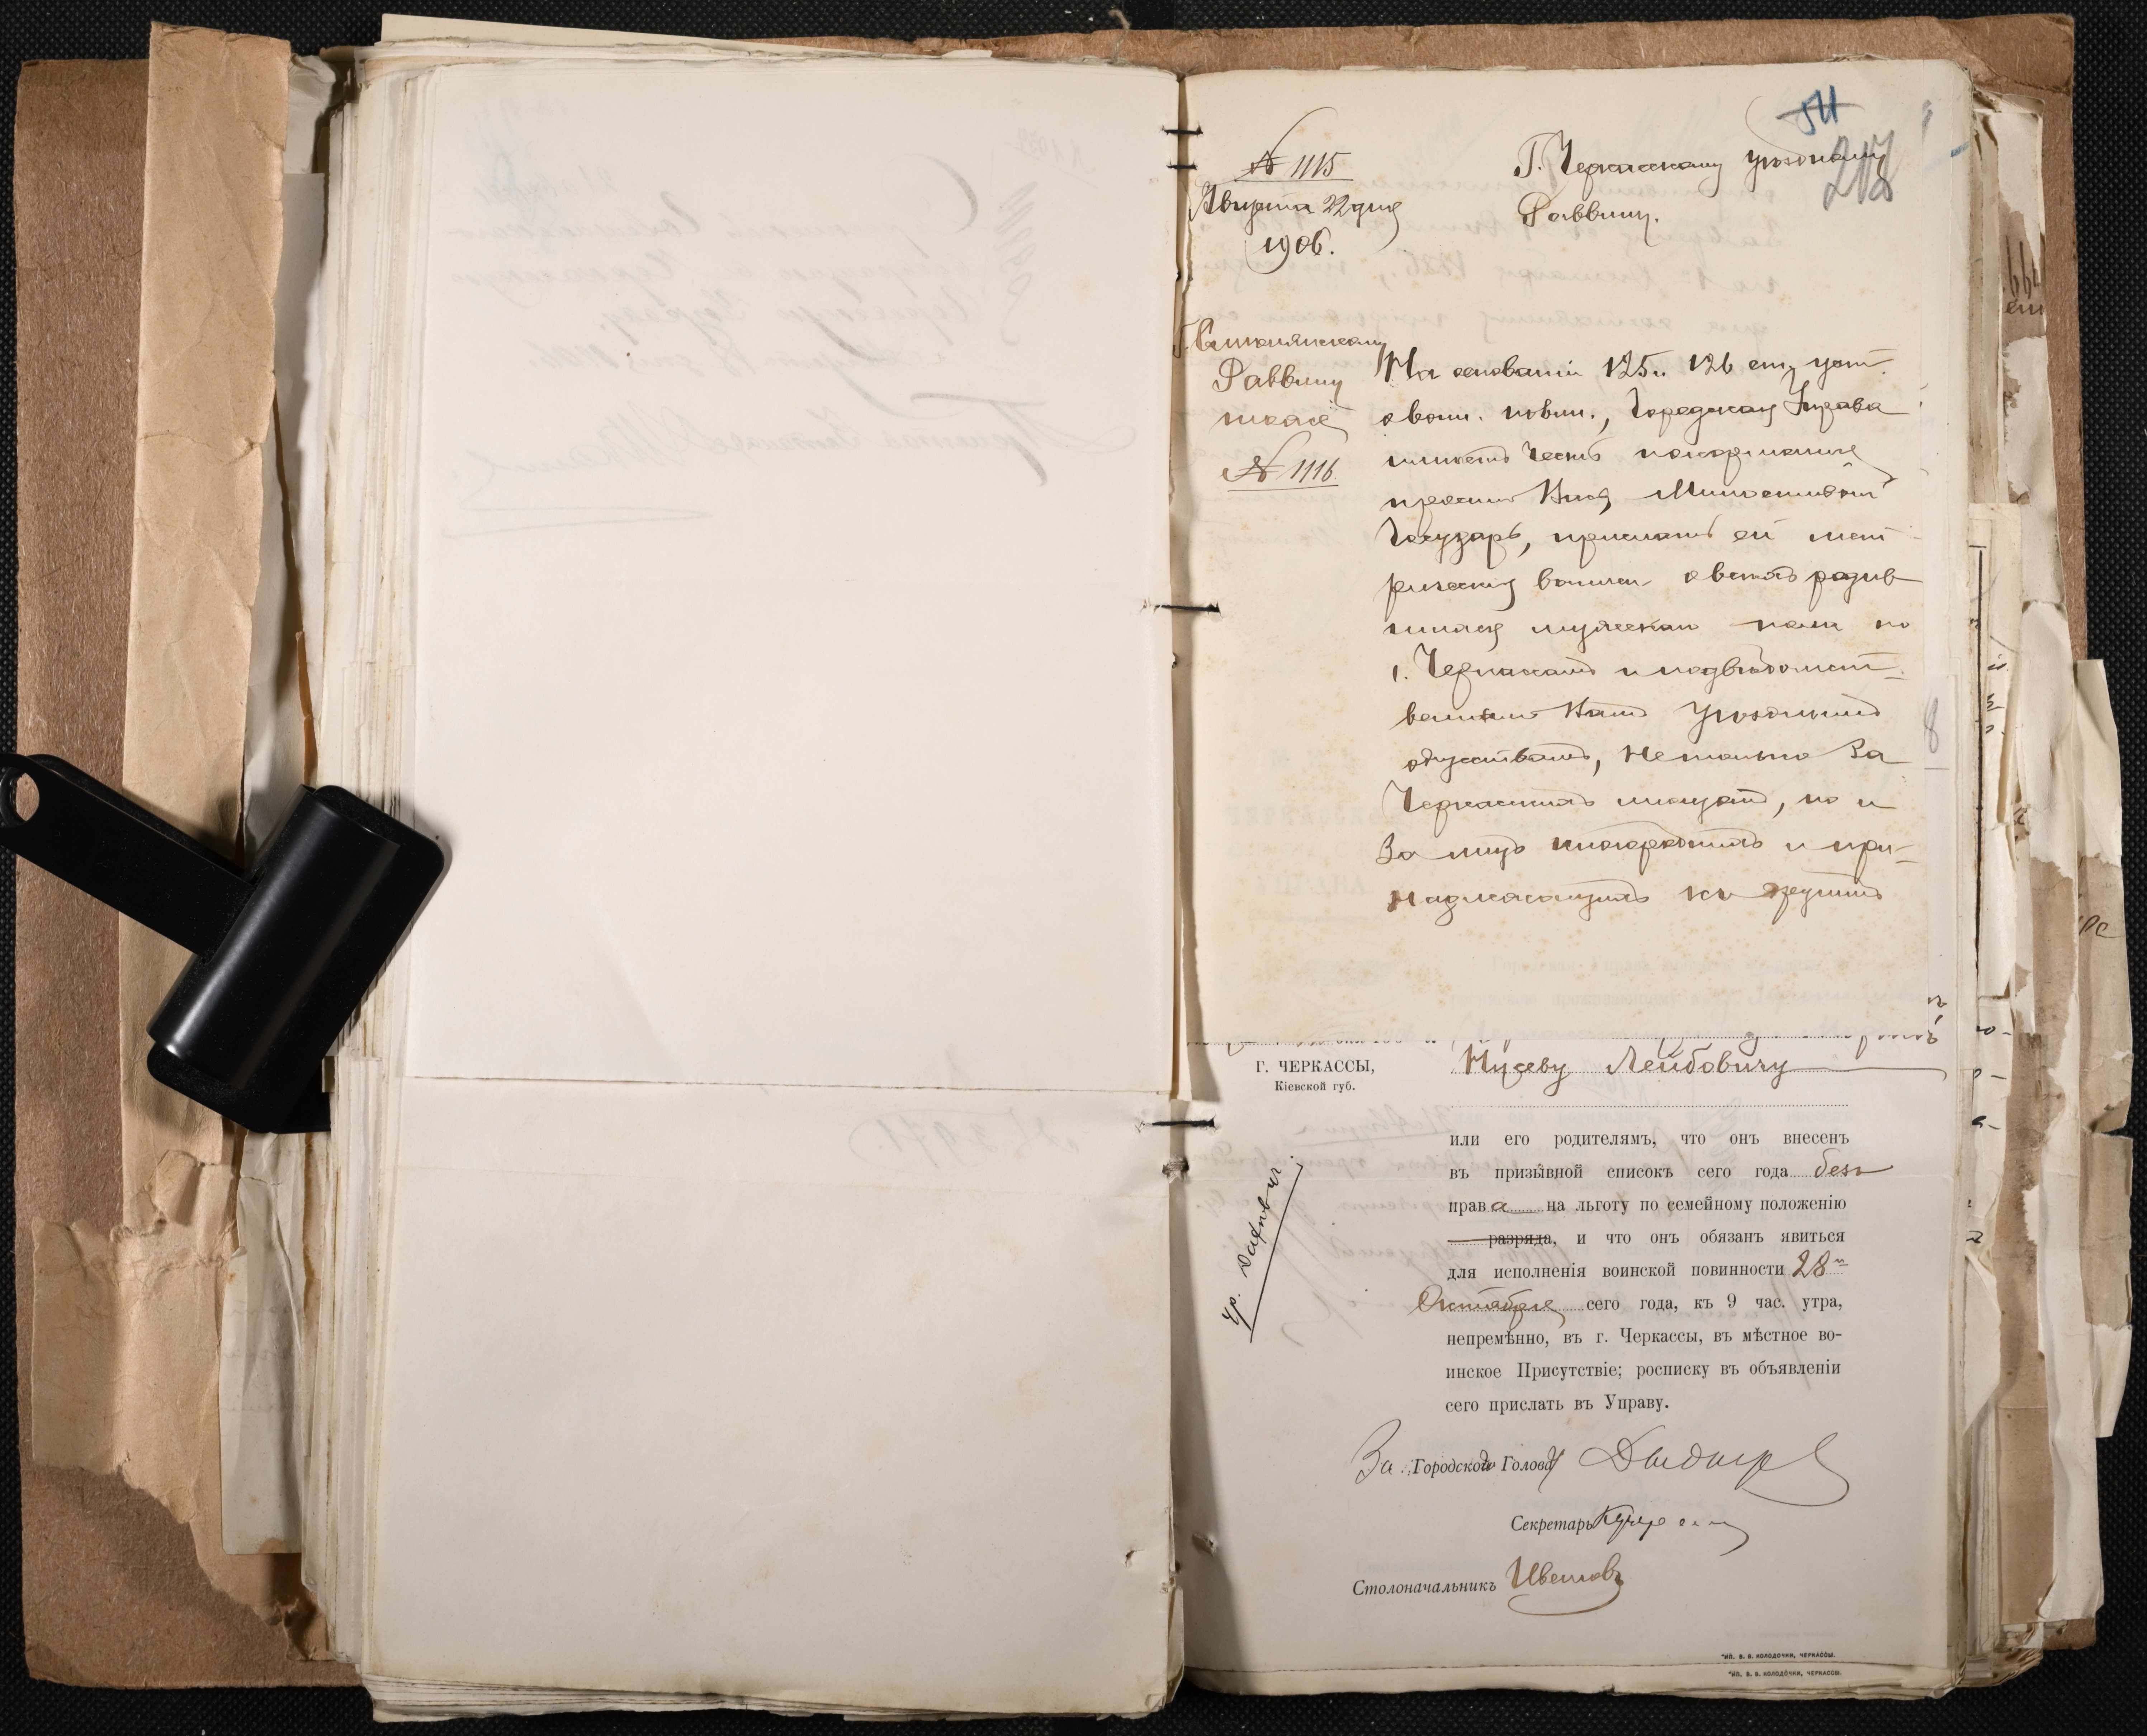 54
218
№ 1115
Августа 22 дня
1906.
Г. Черкасскому уѣздному
Раввину.
Раввину
тоже
№ 1116
На основаніи 125 и 126 ст. уст.
о воин. повин., Городская Управа
имѣетъ честь покорнѣйше
просить Васъ, Милостивый
Государь, прислать ей мет-
рическія выписи о всѣхъ родив-
шихся мужескаго пола по
г. Черкассамъ и подвѣдомст-
веннымъ Вамъ уѣзднымъ
обществамъ, не только за
Черкасскихъ мѣщанъ, но и
за лицъ иногороднихъ и при-
надлежащихъ къ другимъ
Г. ЧЕРКАССЫ,
Кіевской губ.
Нусеву Лейбовичу
или его родителямъ, что онъ внесенъ
въ призывной списокъ сего года безъ
права на льготу по семейному положенію
разряда, и что онъ обязанъ явиться
для исполненія воинской повинности 28го
Октября сего года, къ 9 час. утра,
непремѣнно, въ г. Черкассы, въ мѣстное во-
инское Присутствіе; росписку въ объявленіи
сего прислать въ Управу.
За Городского Голову
Секретарь
Столоначальникъ
ТИП. В. В. КОЛОДОЧКИ, ЧЕРКАССЫ.
ТИП. В. В. КОЛОДОЧКИ, ЧЕРКАССЫ.